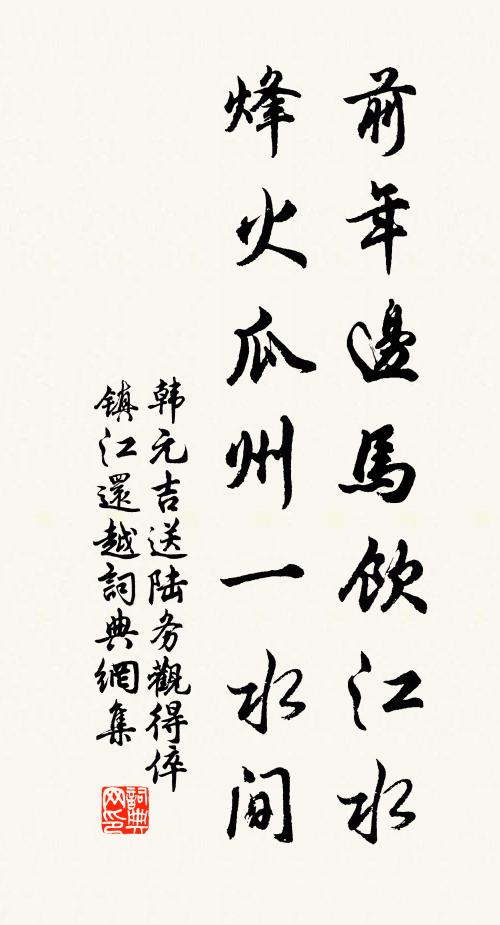 前年邊馬飲江水
烽火瓜州一水间
韩元吉送陆务觀得倅
镇江還越詞典網集
詞典网印